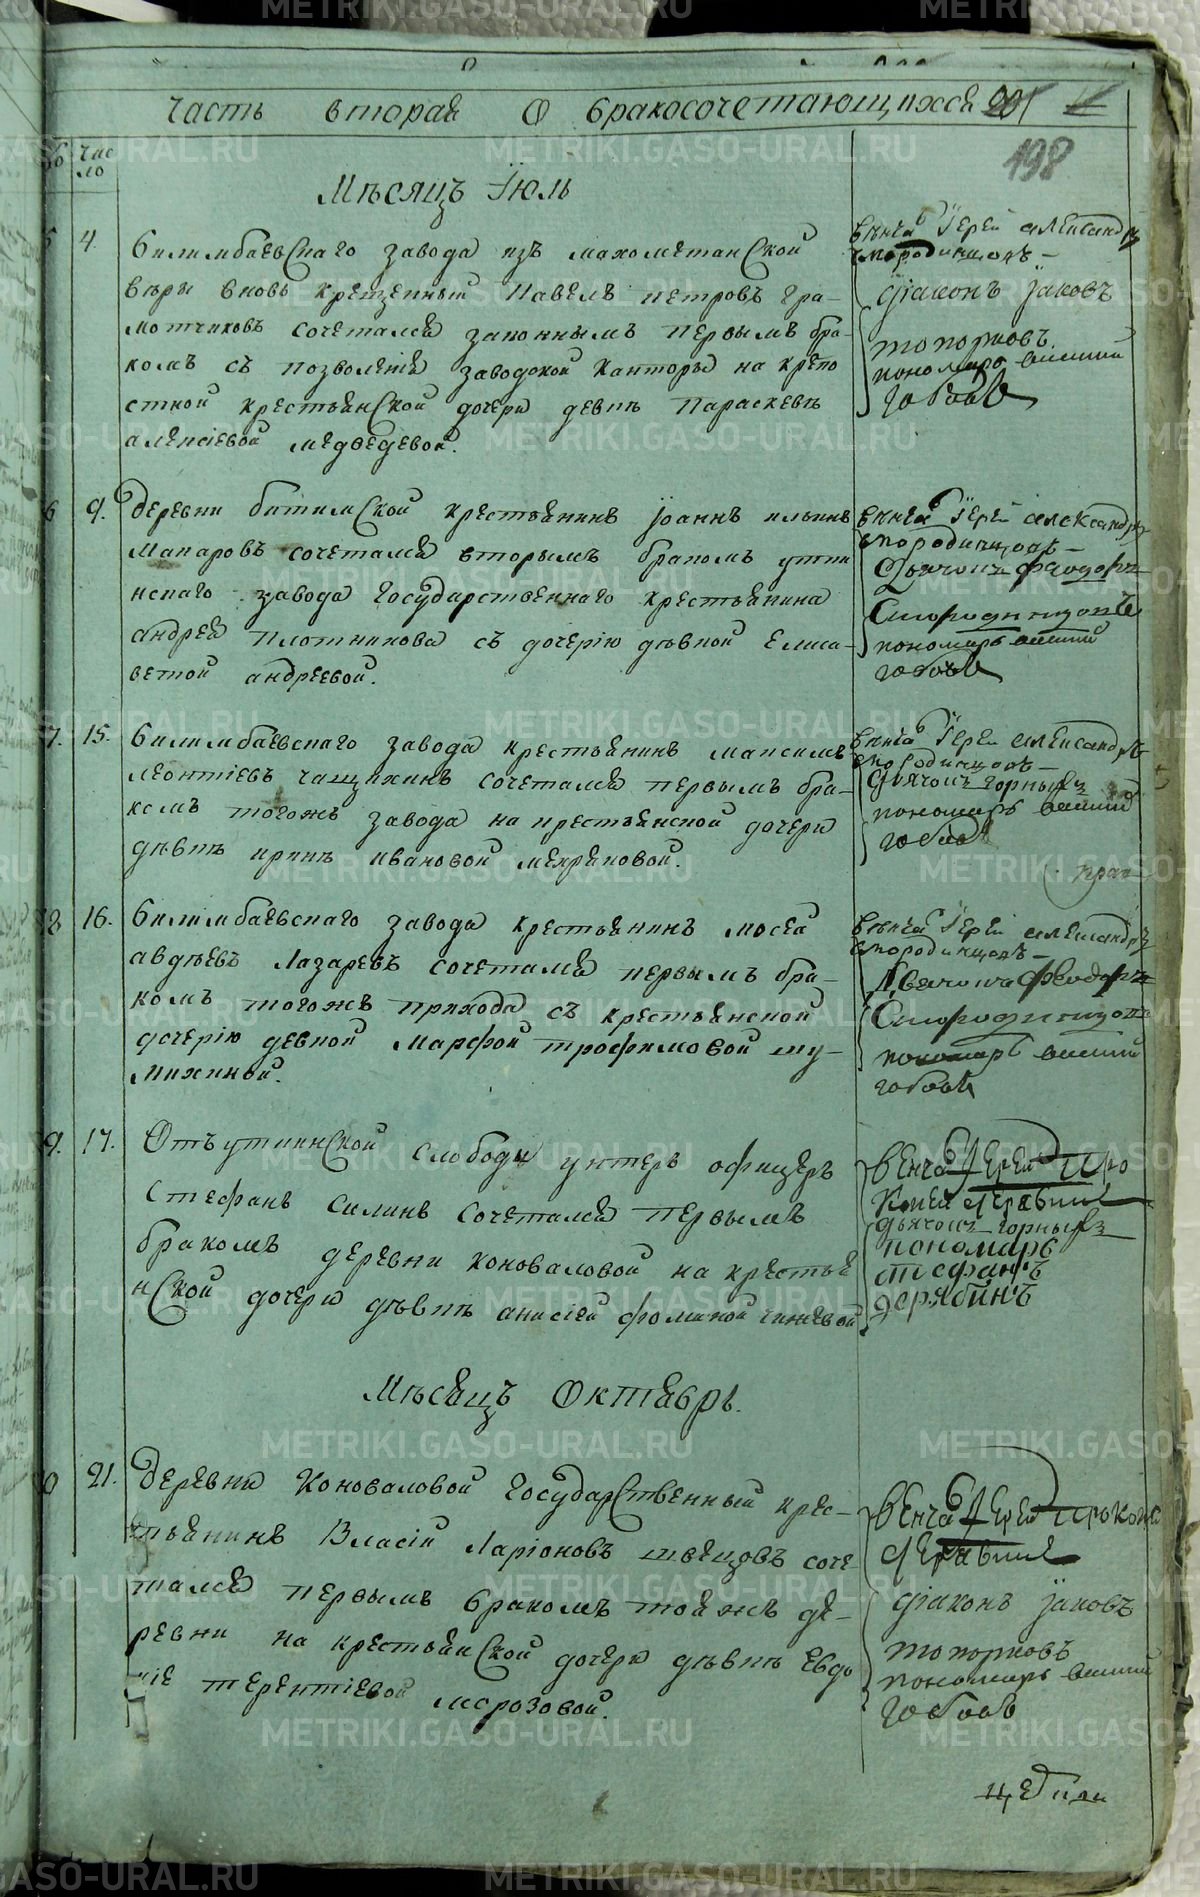 часть вторая О бракосочетающихся
198
чис
ло
Мѣсяцъ Їюль
4. билимбаевскаго завода изъ махометанской
вѣры вновь крещенный Павелъ петровъ гра-
мотчиковъ сочетался законнымъ первымъ бра-
комъ съ позволенія заводской канторы на крепо
стной крестьянской дочери девке Параскевѣ
алексіевой медведевой.
венча Їерей александръ
смородинцовъ
діаконъ їаковъ
топорковъ
пономарь
9. деревни битимской крестьянинъ їоаннъ ильинъ
Макаровъ сочетался вторымъ бракомъ утки
нскаго завода государственнаго крестьянина
андрея плотникова съ дочерію дѣвкой Елиса-
ветой андреевой.
венча Їерей александръ
смородинцовъ
Дьячокъ феодоръ
Смородинцовъ
пономарь
15. билимбаевскаго завода крестьянинъ максимъ
леонтіевъ чащихинъ сочетался первымъ бра-
комъ тогожъ завода на крестьянской дочери
дѣвкѣ иринѣ ивановой мехряковой.
венча Їерей александръ
смородинцовъ
дьячокъ
пономарь
16. билимбаевскаго завода крестьянинъ мосей
авдѣевъ Лазаревъ сочетался первымъ бра-
комъ тогожъ прихода съ крестьянской
дочерію девкой Марфой трофимовой шу-
михиной.
венча Їерей александръ
смородинцовъ
Дьячокъ феодоръ
Смородинцовъ
пономарь
17. Отъ уткинской слободы унтеръ офицеръ
Стефанъ Силинъ сочетался первымъ
бракомъ деревни коноваловой на крестья
нской дочери дѣвкѣ анисіей фоминой
венча Їерей Про
копей дерябинъ
дьячокъ
пономарь
стефанъ
дерябинъ
Мѣсяцъ Октябрь.
21. деревни коноваловой государственный крес-
тьянинъ Власій Ларіоновъ швецовъ соче
тался первымъ бракомъ тояжъ де-
ревни на крестьянской дочери дѣвкѣ Евдо
кіе терентіевой морозовой.
венча Їерей Прокопей
дерябинъ
діаконъ їаковъ
топорковъ
пономарь